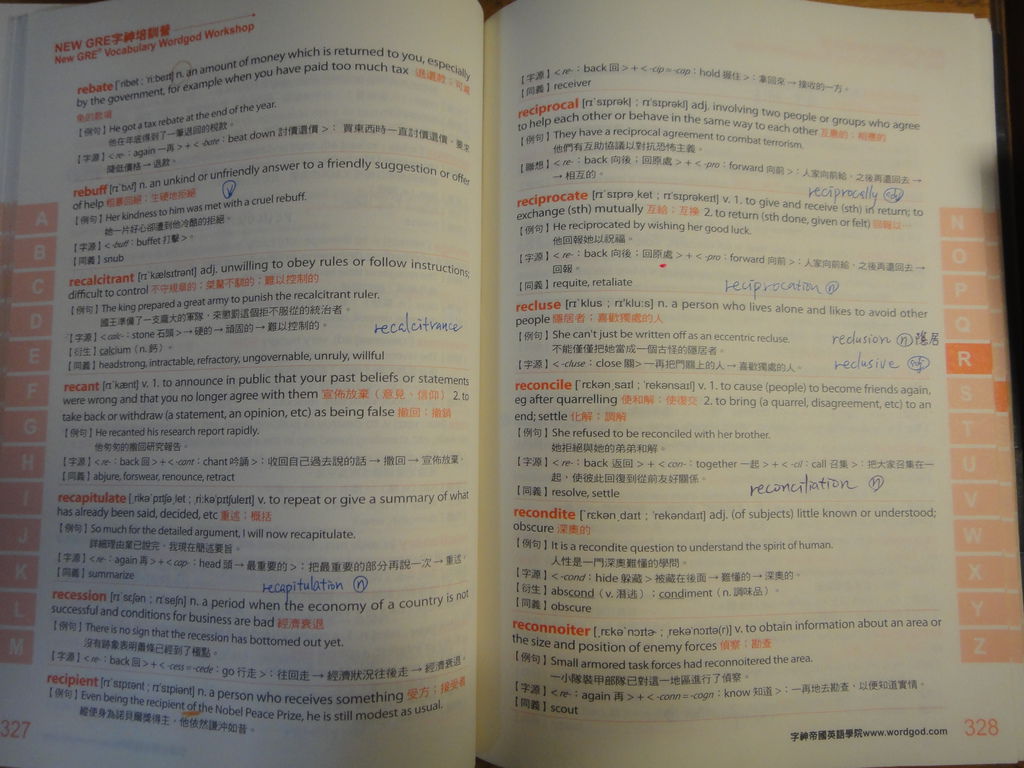 NEW GRE字神培訓營
New GRE® Vocabulary Wordgod Workshop
rebate [ˈribet ; ˈriːbeɪt] n. an amount of money which is returned to you, especially
by the government, for example when you have paid too much tax 退還款；可減
免的款項
【例句】He got a tax rebate at the end of the year.
他在年底得到了一筆退回的稅款。
【字源】< re- : again 再 > + < -bate : beat down 討價還價 >：買東西時一直討價還價，要求
降低價格 → 退款。
rebuff [rɪˈbʌf] n. an unkind or unfriendly answer to a friendly suggestion or offer
of help 粗暴回絕；生硬地拒絕
v
【例句】Her kindness to him was met with a cruel rebuff.
她一片好心卻遭到他冷酷的拒絕。
【字源】< -buff : buffet 打擊 >。
【同義】snub
recalcitrant [rɪˈkælsɪtrənt] adj. unwilling to obey rules or follow instructions;
difficult to control 不守規章的；桀驁不馴的；難以控制的
【例句】The king prepared a great army to punish the recalcitrant ruler.
國王準備了一支龐大的軍隊，來懲罰這個拒不服從的統治者。
【字源】< calc- : stone 石頭 > → 硬的 → 頑固的 → 難以控制的。
recalcitrance
【衍生】calcium (n. 鈣)。
【同義】headstrong, intractable, refractory, ungovernable, unruly, willful
recant [rɪˈkænt] v. 1. to announce in public that your past beliefs or statements
were wrong and that you no longer agree with them 宣佈放棄（意見、信仰） 2. to
take back or withdraw (a statement, an opinion, etc) as being false 撤回；撤銷
【例句】He recanted his research report rapidly.
他匆匆的撤回研究報告。
【字源】< re- : back 回 > + < -cant : chant 吟誦 >：收回自己過去說的話 → 撤回 → 宣佈放棄。
【同義】abjure, forswear, renounce, retract
recapitulate [ˌrikəˈpɪtʃəˌlet ; ˌriːkəˈpɪtʃuleɪt] v. to repeat or give a summary of what
has already been said, decided, etc 重述；概括
【例句】So much for the detailed argument, I will now recapitulate.
詳細理由業已說完，我現在簡述要旨。
【字源】< re- : again 再 > + < cap- : head 頭 → 最重要的 >：把最重要的部分再說一次 → 重述。
【同義】summarize
recapitulation n
recession [rɪˈsɛʃən ; rɪˈseʃn] n. a period when the economy of a country is not
successful and conditions for business are bad 經濟衰退
【例句】There is no sign that the recession has bottomed out yet.
沒有跡象表明蕭條已經到了極點。
【字源】< re- : back 回 > + < -cess = -cede : go 行走 >：往回走 → 經濟狀況往後走 → 經濟衰退。
recipient [rɪˈsɪpɪənt ; rɪˈsɪpiənt] n. a person who receives something 受方；接受者
【例句】Even being the recipient of the Nobel Peace Prize, he is still modest as usual.
縱使身為諾貝爾獎得主，他依然謙沖如昔。
327
A
B
C
D
E
F
G
H
I
J
K
L
M
【字源】< re- : back 回 > + < -cip = -cap : hold 握住 >：拿回來 → 接收的一方。
【同義】receiver
reciprocal [rɪˈsɪprək! ; rɪˈsɪprəkl] adj. involving two people or groups who agree
to help each other or behave in the same way to each other 互惠的；相應的
【例句】They have a reciprocal agreement to combat terrorism.
他們有互助協議以對抗恐怖主義。
【聯想】< re- : back 向後；回原處 > + < -pro : forward 向前 >：人家向前給，之後再還回去 →
→ 相互的。
reciprocally adv
reciprocate [rɪˈsɪprəˌket ; rɪˈsɪprəkeɪt] v. 1. to give and receive (sth) in return; to
exchange (sth) mutually 互給；互換 2. to return (sth done, given or felt) 回報以…
【例句】He reciprocated by wishing her good luck.
他回報她以祝福。
【字源】< re- : back 向後；回原處 > + < -pro : forward 向前 >：人家向前給，之後再還回去 →
回報。
【同義】requite, retaliate
reciprocation n
recluse [rɪˈklus ; rɪˈkluːs] n. a person who lives alone and likes to avoid other
people 隱居者；喜歡獨處的人
【例句】She can't just be written off as an eccentric recluse.
不能僅僅把她當成一個古怪的隱居者。
reclusion n 隱居
【字源】< -cluse : close 關 > 一再把門關上的人 → 喜歡獨處的人。
reclusive adj
reconcile [ˈrɛkənˌsaɪl ; ˈrekənsaɪl] v. 1. to cause (people) to become friends again,
eg after quarrelling 使和解；使復交 2. to bring (a quarrel, disagreement, etc) to an
end; settle 化解；調解
【例句】She refused to be reconciled with her brother.
她拒絕與她的弟弟和解。
【字源】< re- : back 返回 > + < con- : together 一起 > + < -cil : call 召集 >：把大家召集在一
起，使彼此回復到從前友好關係。
【同義】resolve, settle
reconciliation n
recondite [ˈrɛkənˌdaɪt ; ˈrekəndaɪt] adj. (of subjects) little known or understood;
obscure 深奧的
【例句】It is a recondite question to understand the spirit of human.
人性是一門深奧難懂的學問。
【字源】< -cond : hide 躲藏 > 被藏在後面 → 難懂的 → 深奧的。
【衍生】abscond（v. 潛逃）; condiment（n. 調味品）。
【同義】obscure
reconnoiter [ˌrɛkəˈnɔɪtɚ ; ˌrekəˈnɔɪtə(r)] v. to obtain information about an area or
the size and position of enemy forces 偵察；勘查
【例句】Small armored task forces had reconnoitered the area.
一小隊裝甲部隊已對這一地區進行了偵察。
【字源】< re- : again 再 > + < -conn = -cogn : know 知道 >：一再地去勘查，以便知道實情。
【同義】scout
字神帝國英語學院www.wordgod.com
328
N
O
P
Q
R
S
T
U
V
W
X
Y
Z